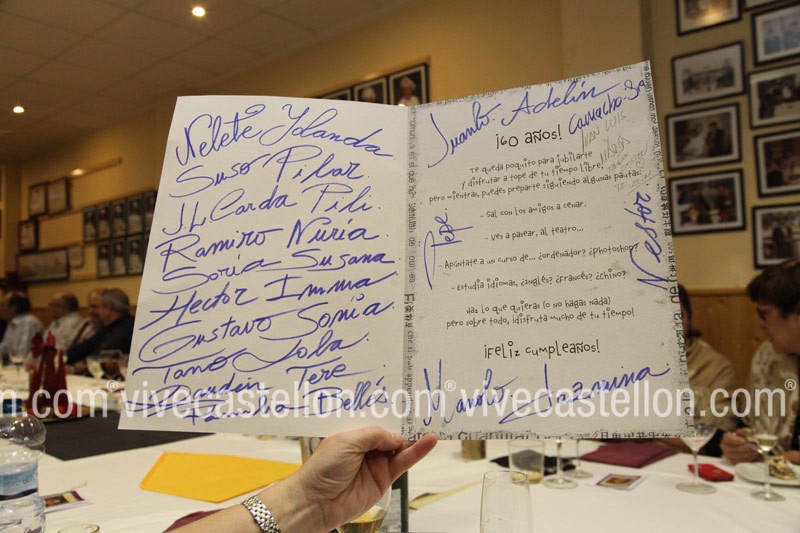 Nelete Yolanda
Suso Pilar.
J.L Carda Pili.
Ramiro Nuria.
Soria Susana
Hector Imma
Gustavo Sonia
Tano Lola
Tere
Familia Bellés
Juanto. Adelin
Camacho
¡60 AÑOS!
Te queda poquito para jubilarte
y disfrutar a tope de tu tiempo libre,
pero mientras, puedes prepararte siguiendo algunas pautas:
- Sal con los amigos a cenar.
- Ves a pasear, al teatro...
- Apúntate a un curso de... ¿ordenador? ¿Photoshop?
- Estudia idiomas, ¿inglés? ¿francés? ¿chino?
Haz lo que quieras (o no hagas nada)
pero sobre todo, ¡disfruta mucho de tu tiempo!
¡Feliz cumpleaños!
Pepe
Manolo. Jazmina
vivecastellon.com® vivecastellon.com® vivecastellon.com®